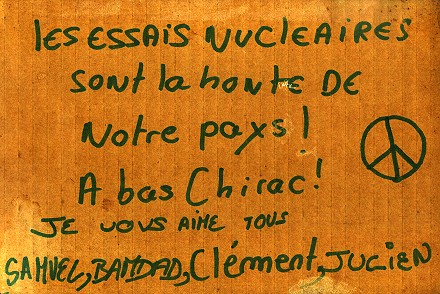 les essais nucleaires
sont la honte de
Notre pays!
A bas Chirac!
Je vous aime tous
Samuel, Bamdad, Clément, Jucien